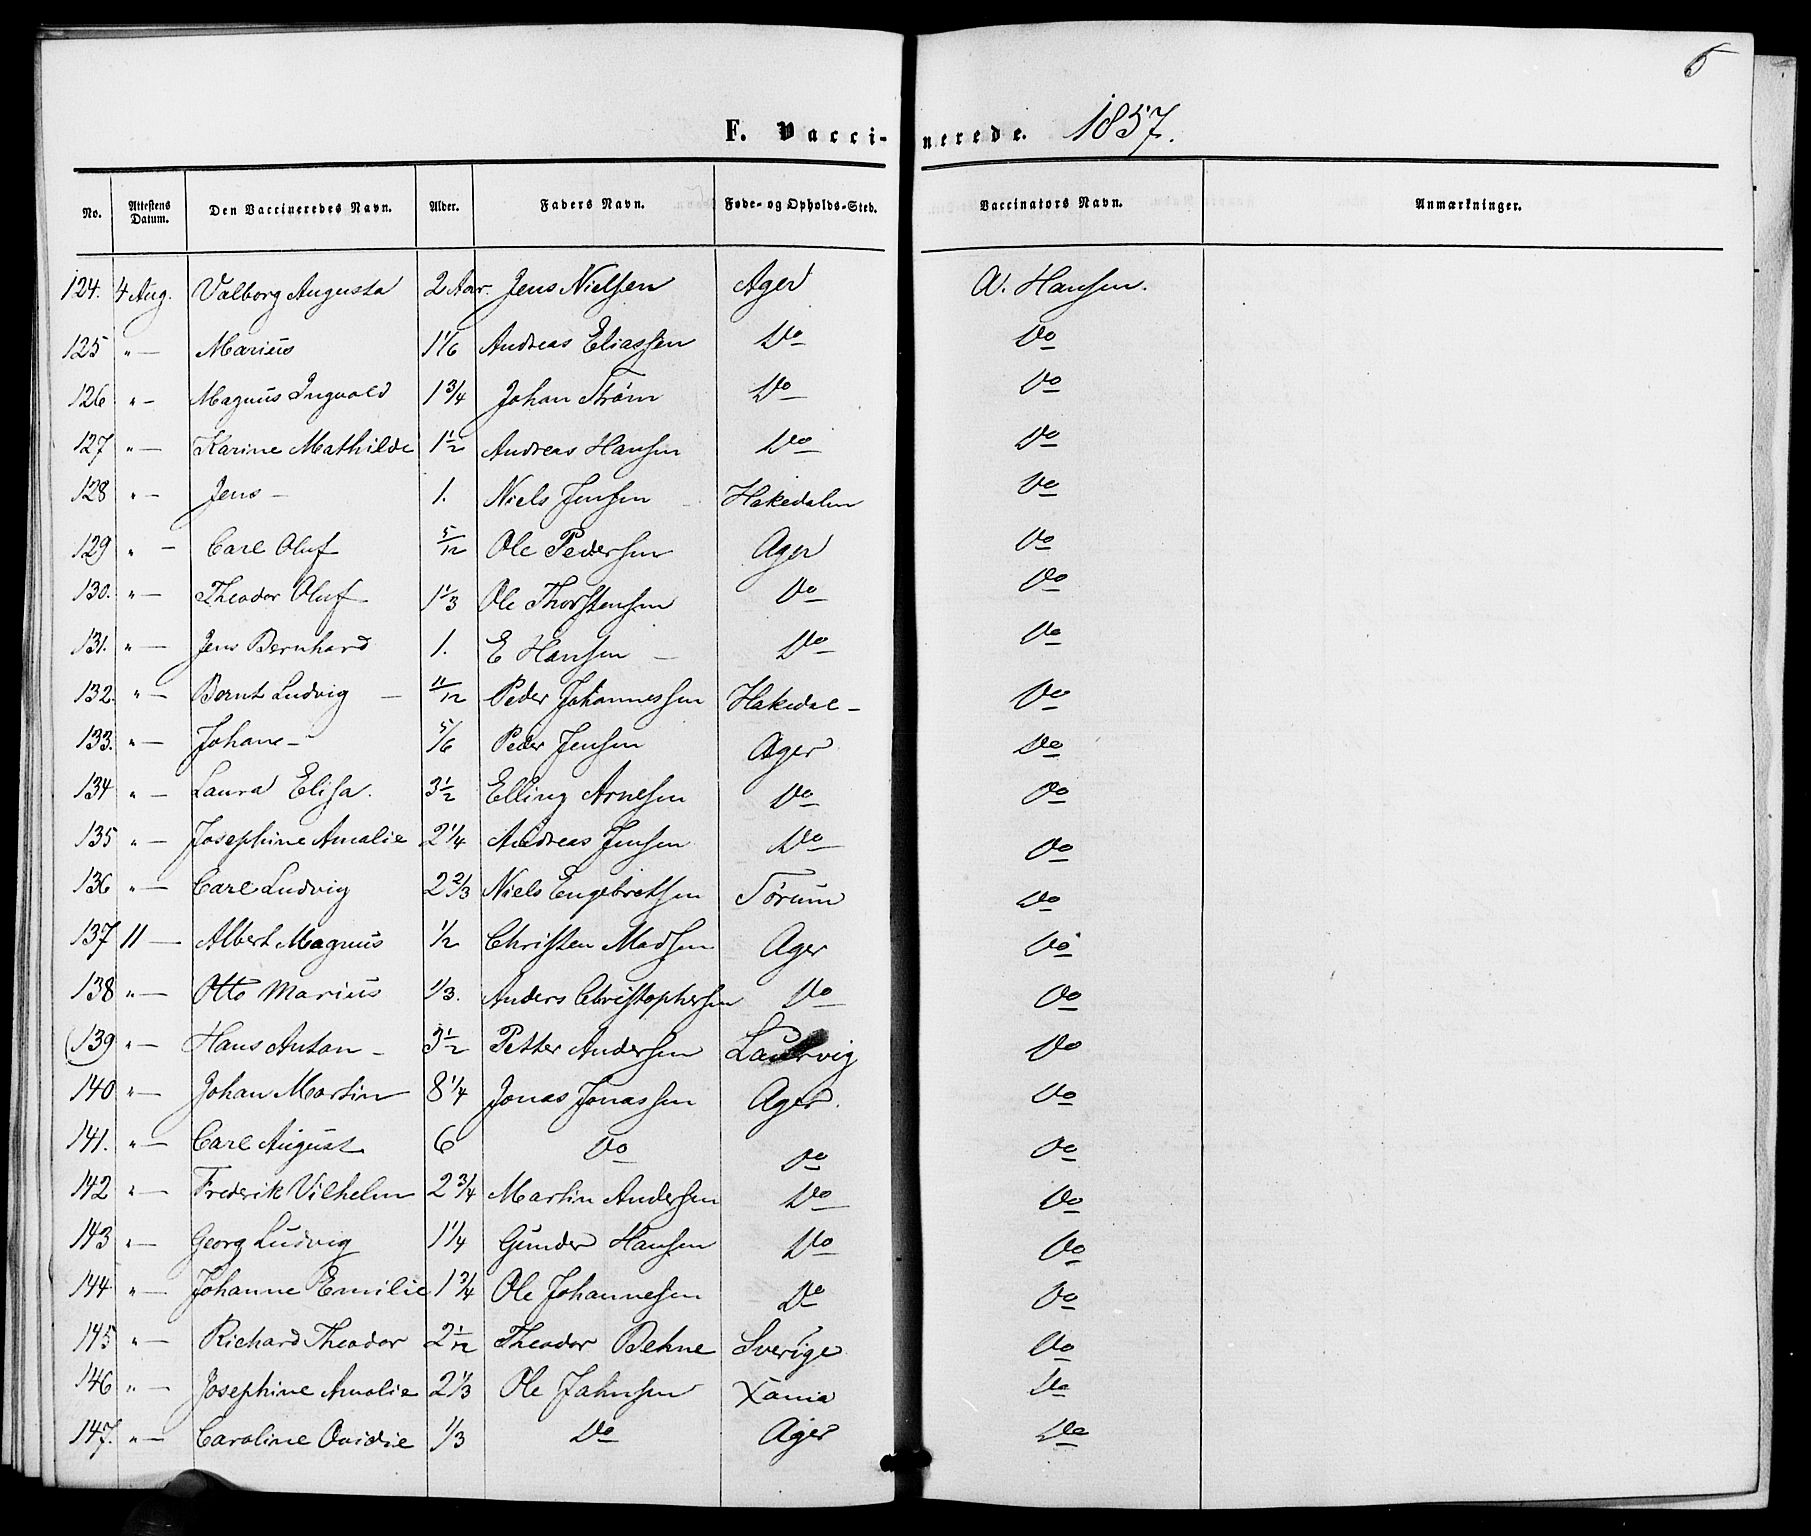 5
F. Vaccinerede. 1857.
No. Attestens Datum. Den Vaccineredes Navn. Alder. Faders Navn. Føde- og Opholds-Sted. Vaccinators Navn. Anmærkninger.
124. 4 Aug. Valborg Augusta 2 Aar. Jens Nielsen Ager A. Hansen.
125 " — Marius 1 1/6 Andreas Eliassen Do Do
126 " — Magnus Ingvald 1 3/4 Johan Strøm Do Do
127 " — Karine Mathilde 1 1/2 Andreas Hansen Do Do
128 " — Jens — 1. Niels Jensen — Hakedalen Do
129 " — Carl Oluf 5/12 Ole Pedersen Ager Do
130. " — Theodor Oluf 1 1/3 Ole Thorstensen Do Do
131. " — Jens Bernhard 1. E Hansen — Do Do
132. " — Bernt Ludvig — 11/12 Peder Johannessen Hakedal — Do
133. " — Johane — 5/6 Peder Jensen Ager Do
134 " — Laura Elisa. 3 1/2 Elling Arnesen Do Do
135 " — Josephine Amalie 2 1/4 Andreas Jensen Do Do
136 " — Carl Ludvig 2 2/3 Niels Engebretsen Sørum Do
137 11 — Albert Magnus 1/2 Christen Madsen Ager Do
138 " — Otto Marius 1/3. Anders Christophersen Do Do
(139 " — Hans Anton — 3 1/2 Petter Andersen Laurvig Do
140 " — Johan Martin 8 1/4 Jonas Jonassen Ager. Do
141. " — Carl August 6 Do Do Do
142 " — Frederik Vilhelm 2 3/4 Martin Andersen Do Do
143 " — Georg Ludvig 1 1/4 Gunder Hansen Do Do
144 " — Johanne Emilie 1 3/4 Ole Johannesen Do Do
145 " — Richard Theodor 2 1/12 Theodor Behne Sverige Do
146 " — Josephine Amalie 2 1/3 Ole Jahnsen Xania Do
147. " — Caroline Ovidie 1/3 Do Ager Do